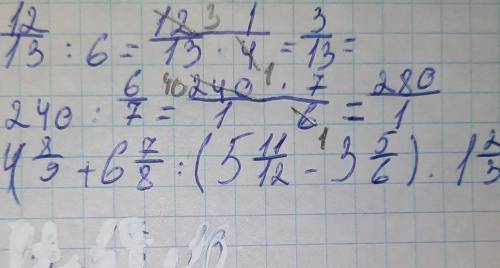 12/13 : 6 = 12 3 · 1 / 13 · 4 = 3/13 =
240 : 6/7 = 40 240 · 7 / 1 · 6 1 = 280/1
4 8/9 + 6 7/8 : (5 11/12 - 3 5/6) · 1 2/3